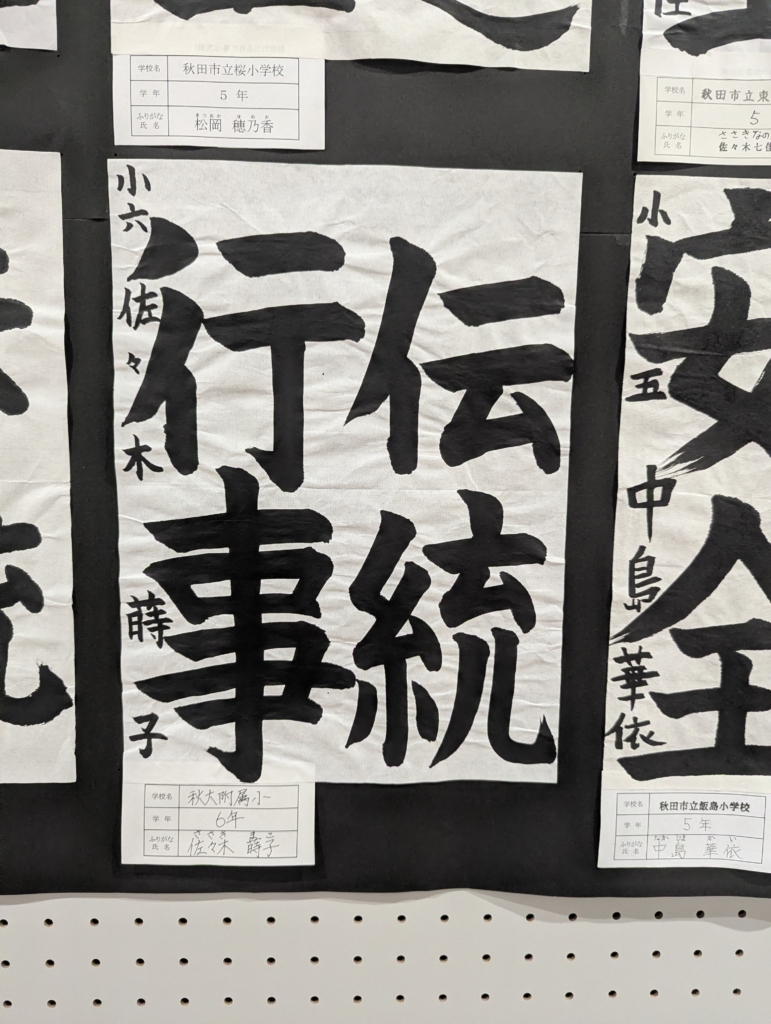 学校名 秋田市立桜小学校
学年 5年
ふりがな まつおか ほのか
氏名 松岡 穂乃香
学校名 秋田市立東
学年 5
ふりがな ささきなの
氏名 佐々木七佳
伝統
行事
小六 佐々木 蒔子
学校名 秋大附属小
学年 6年
ふりがな ささき まこ
氏名 佐々木 蒔子
安全
小五 中島 華依
学校名 秋田市立飯島小学校
学年 5年
ふりがな なかじま かい
氏名 中島 華依